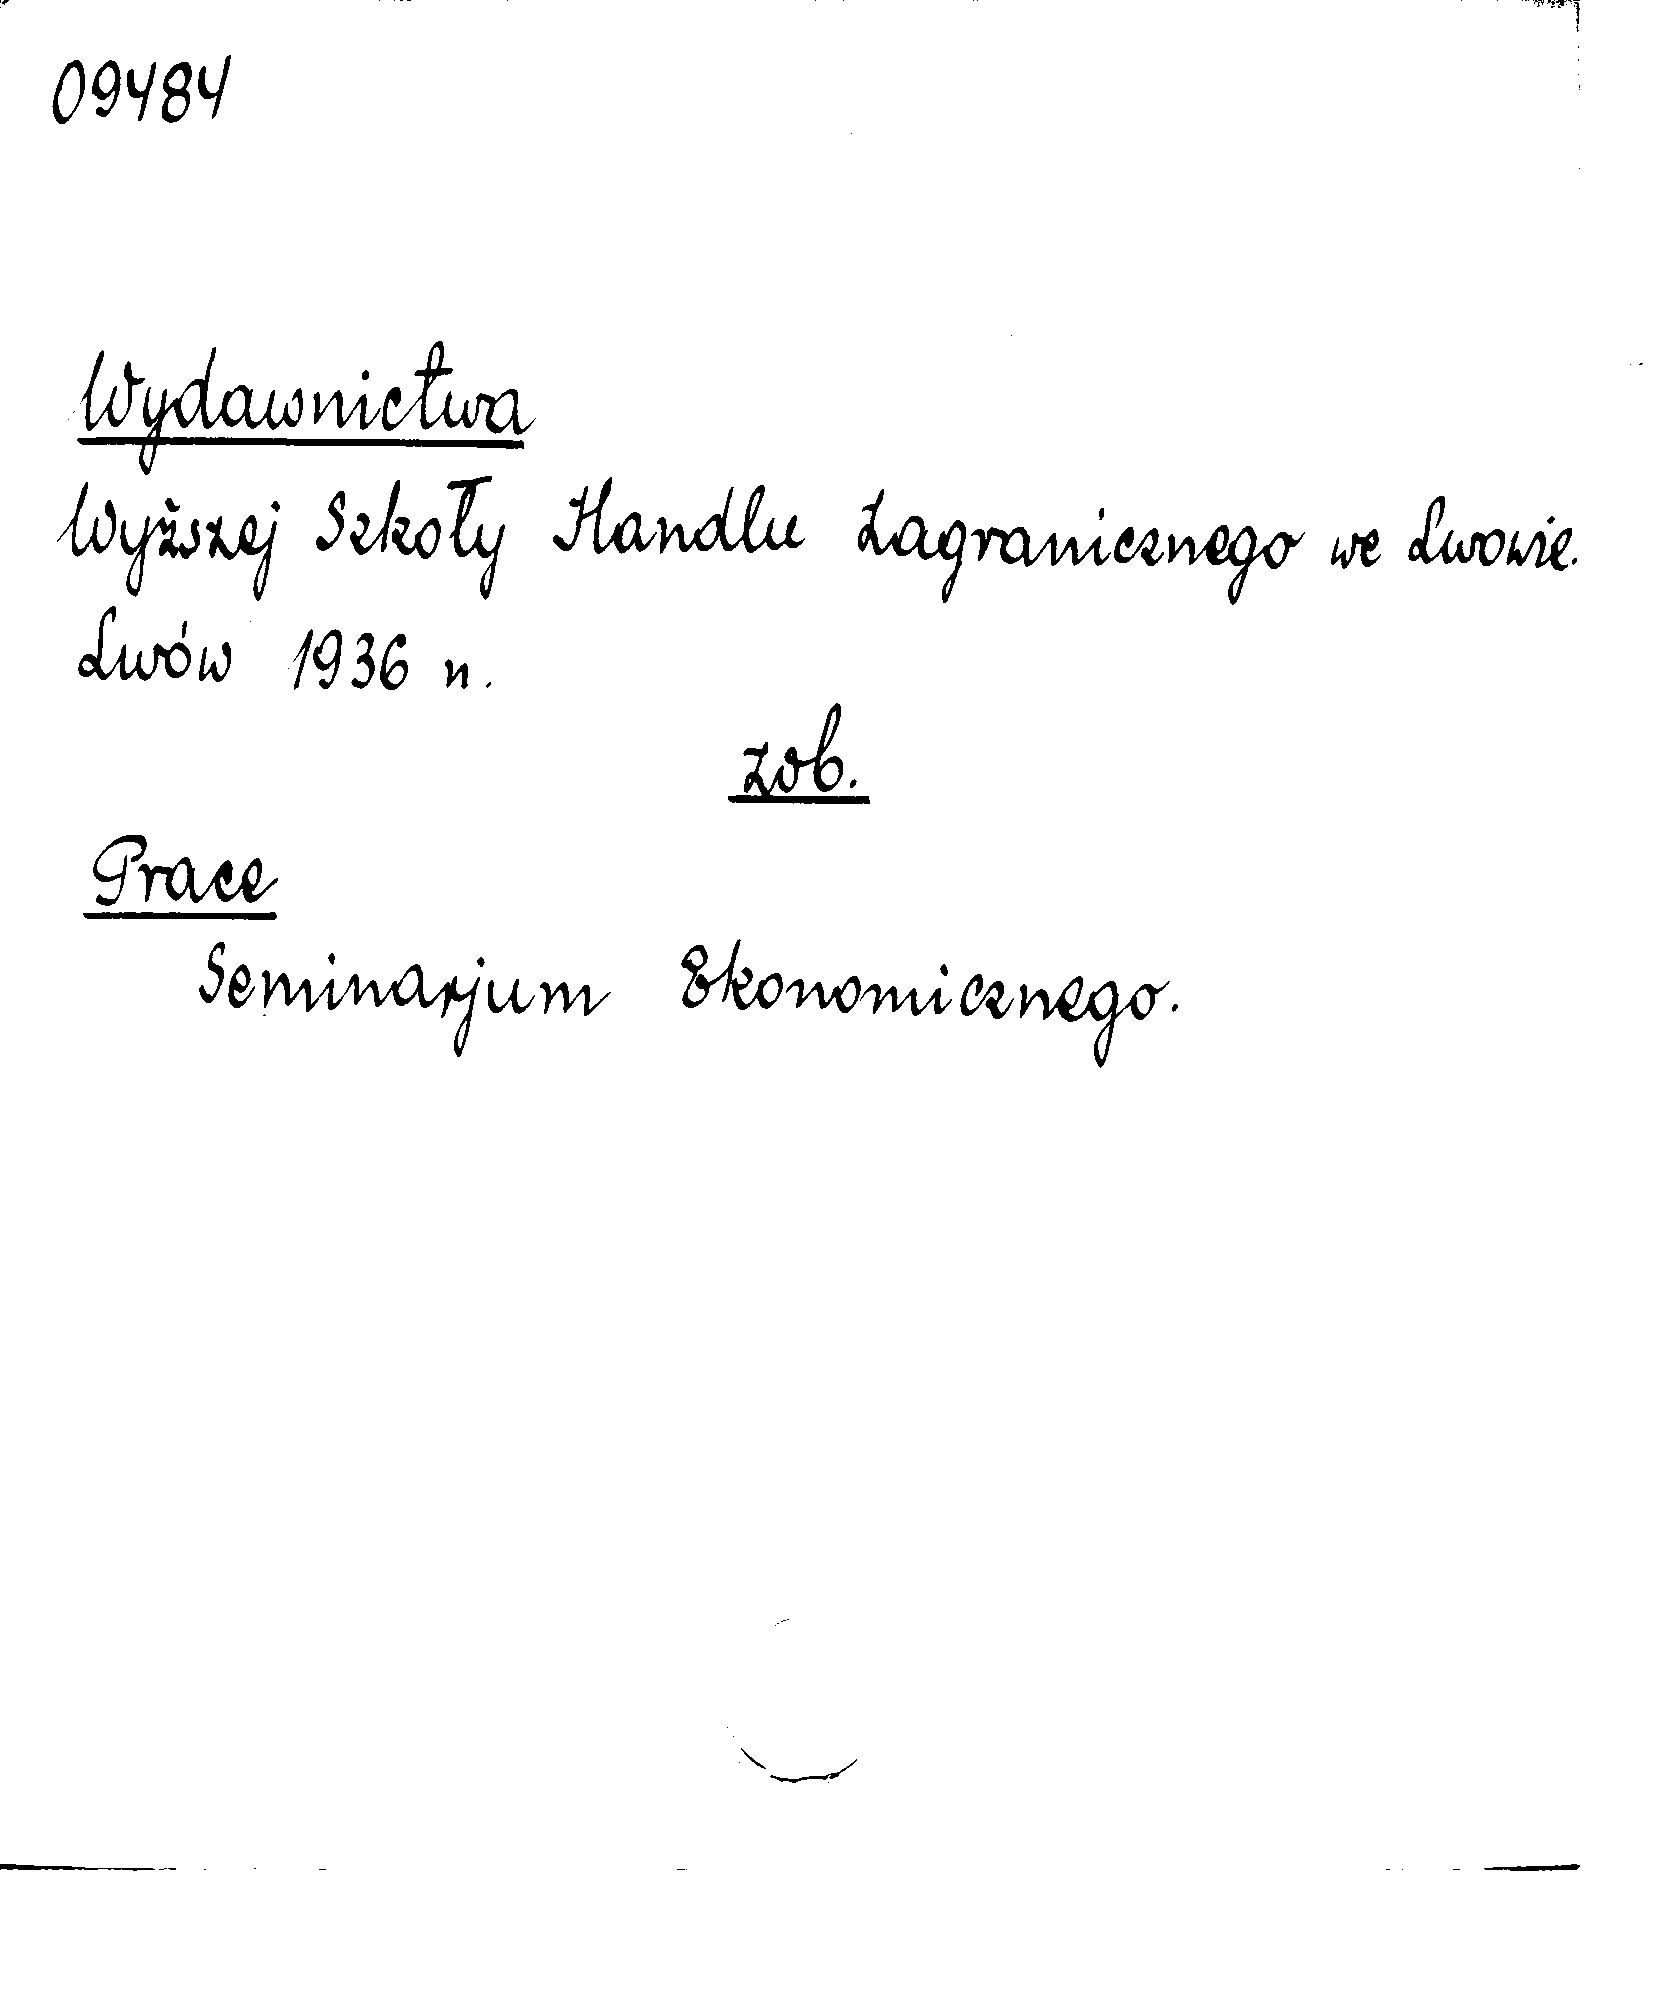 09484
Wydawnictwa
Wyższej Szkoły Handlu Zagranicznego we Lwowie.
Lwów 1936 n.
zob.
Prace
Seminarjum Ekonomicznego.